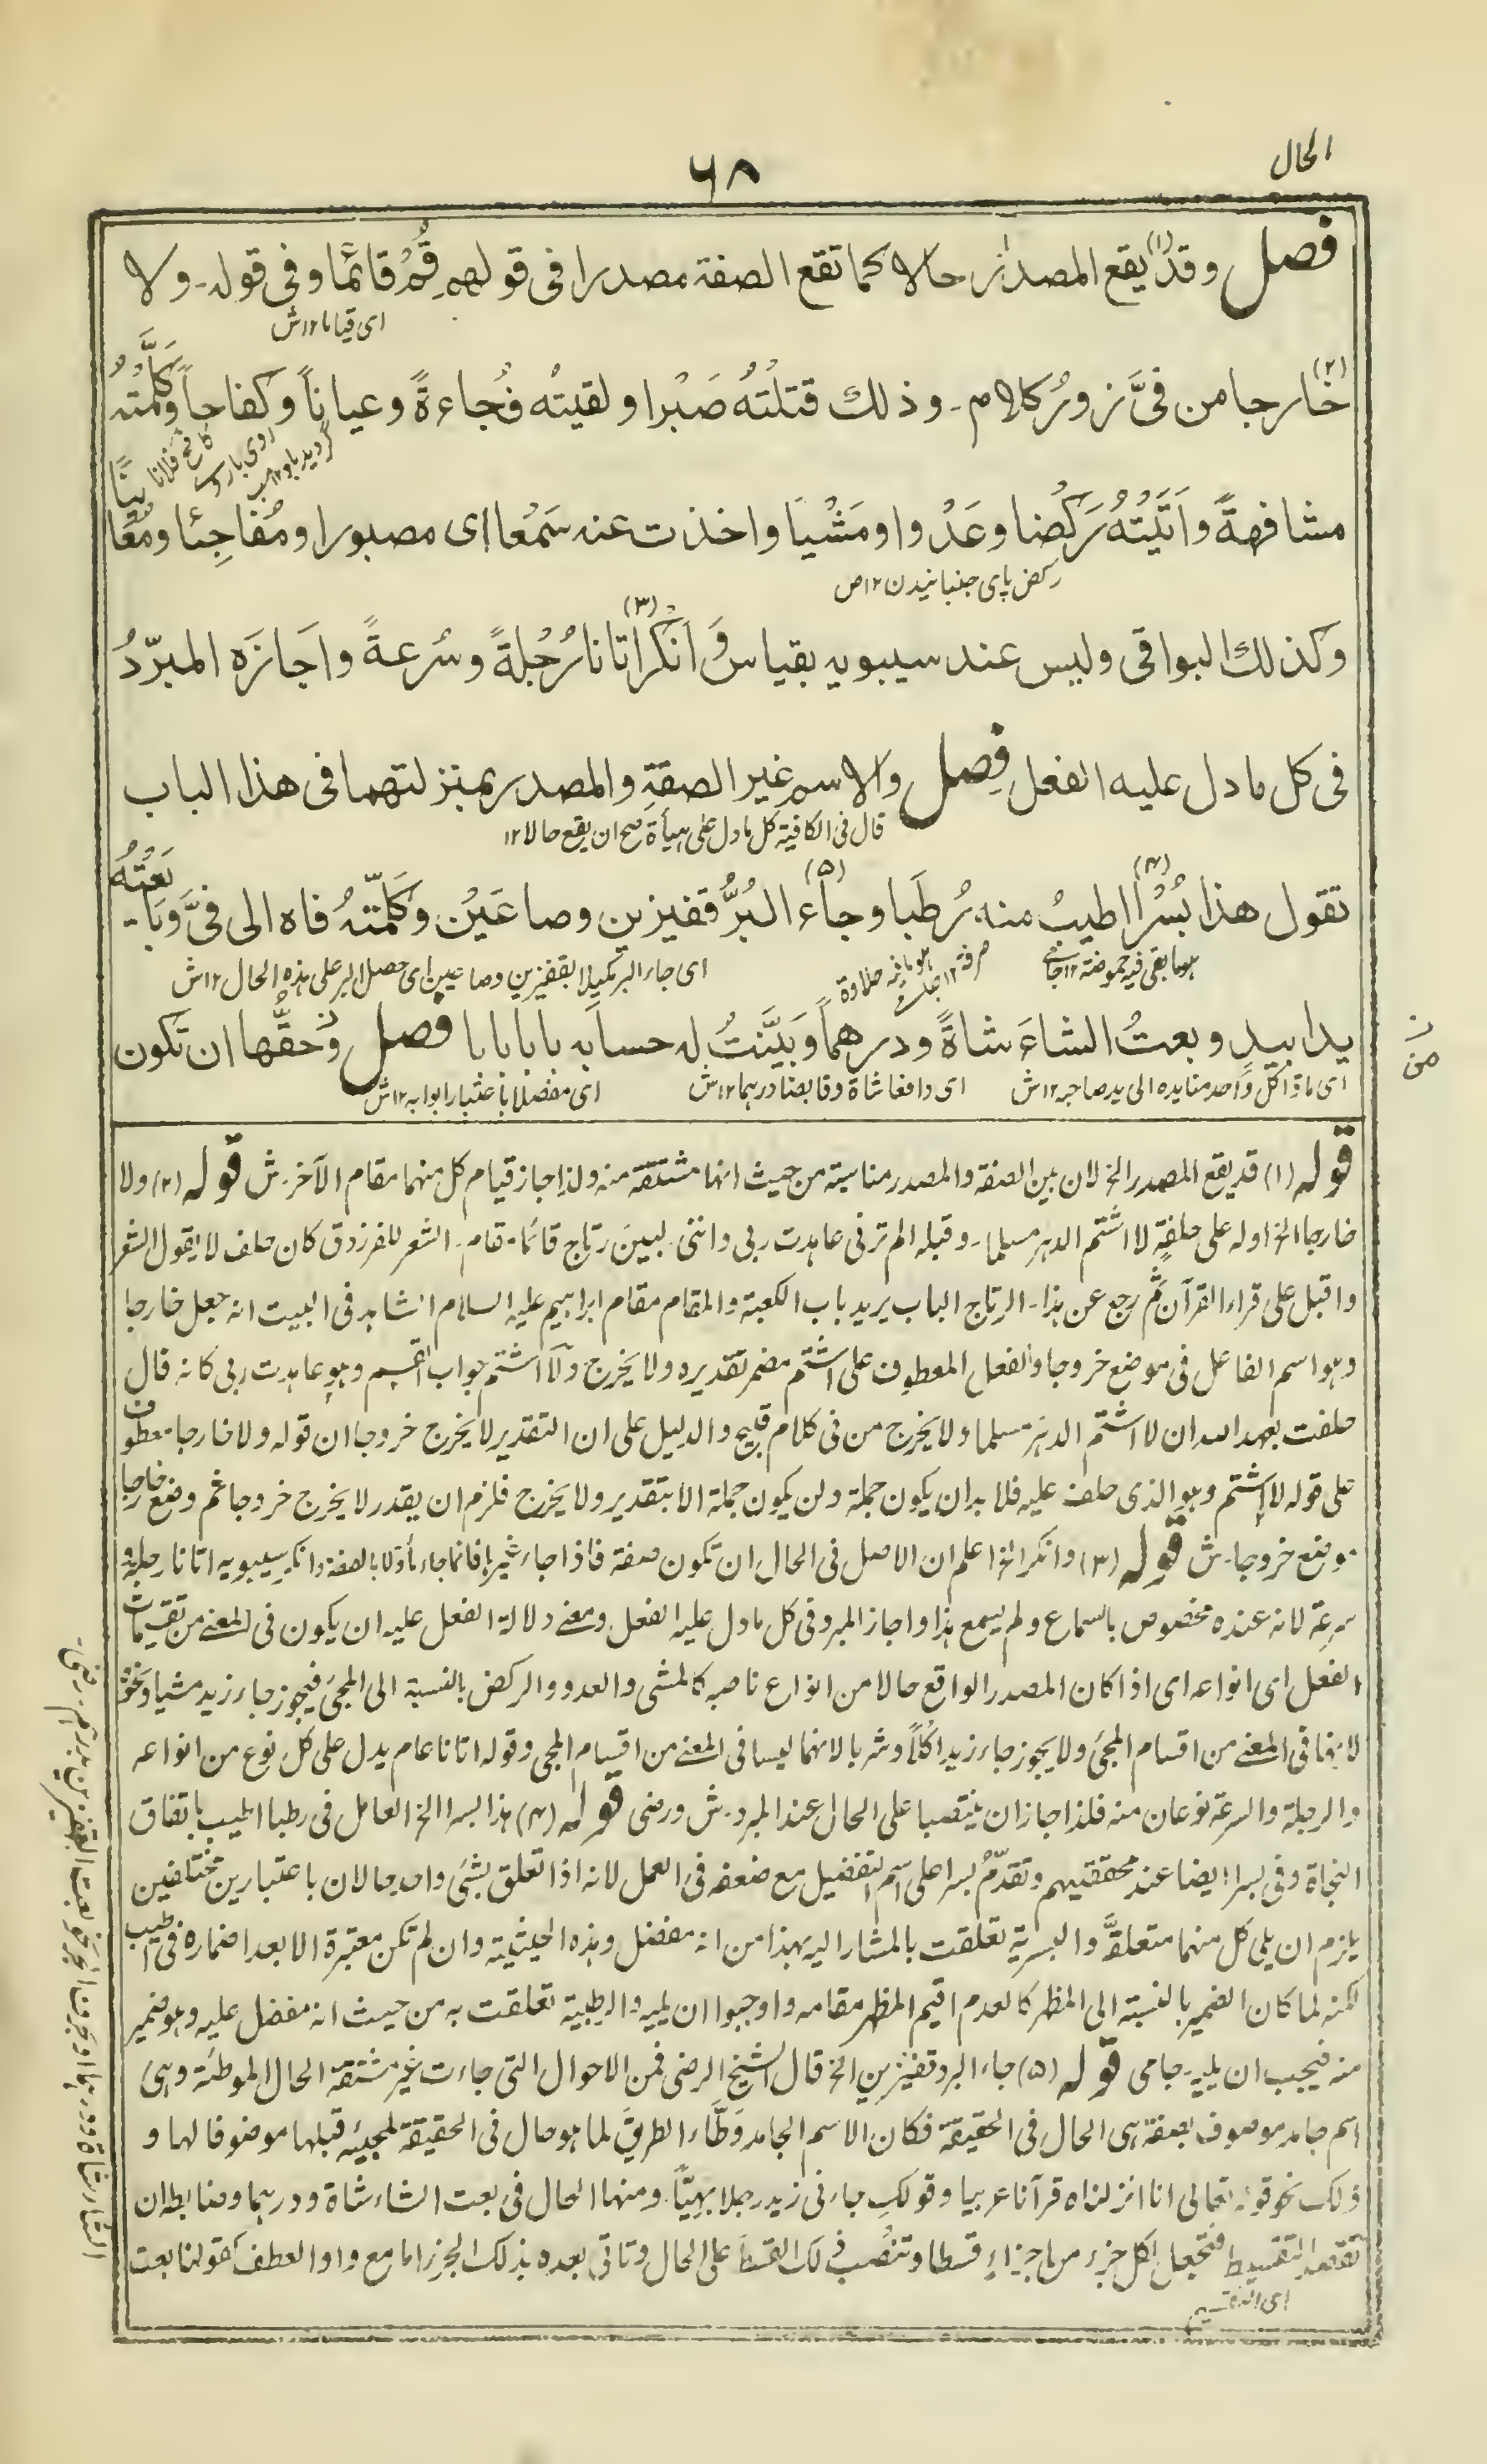 الحال
٦٨
فصل وقد(١) يقع المصدر حالا كما تقع الصفة مصدرا فى قولهم قُمْ قائما وفى قوله ـ ولا
اى قياما ١٢ ش
(٢) خارجا من فىَّ زورُ كلام ـ وذلك قتلتُهُ صَبْرا ولقيتُه فُجاءةً وعياناً وكفاحاً وكلَّمتُه
مشافهةً واَتَيْتُهُ رَكْضا وعَدْوا ومَشْيًا واخذت عنه سَمْعًا اى مصبورا ومُفاجِئا ومُعَايِنًا
ركض پاى جنبانيدن ١٢ ص
وكذلك البواقى وليس عند سيبويه بقياس وَاَنْكَرَ(٣) اتانا رُجْلةً وسُرعةً واَجَازَه المبرّدُ
فى كل ما دل عليه الفعل فصل والاسم غير الصفةِ والمصدر بمنزلتهما فى هذا الباب
قال فى الكافية كل ما دل على هيأة صح ان يقع حالا ١٢
تقول هذا بُسْرًا(٤) اطيبُ منه رُطَبا وجاء(٥) البُرُّ قفيزين وصاعَيْن وكَلَّمْتُهُ فاه الى فىَّ وبَايَعْتُهُ
هو ما بقى فيه حموضة ١٢ جامى
اى جاء البر مكيلا بقفيزين وصاعين اى حصل البر على هذه الحال ١٢ ش
يدا بيدٍ وبعتُ الشاءَ شاةً ودرهماً وبَيَّنتُ له حسابَه بابا بابا فصل وَحقُّها ان تكون
اى دافعا شاة وقابضا درهما ١٢ ش
اى مفصلا باعتبار ابوابه ١٢ ش
قوله (١) قد يقع المصدر الخ لان بين الصفة والمصدر مناسبة من حيث انها مشتقة منه ولذا جاز قيام كل منهما مقام الآخر ـ ش قوله (٢) ولا
خارجا الخ اوله على حلفةٍ لا اشتم الدهر مسلما ـ وقبله الم ترنى عاهدت ربى واننى ـ لبينَ رتاج قائما ـ مقام ـ الشعر للفرزدق كان حلف لا يقول الشعر
واقبل على قراءة القرآن ثم رجع عن هذا ـ الرتاج الباب يريد باب الكعبة والمقام مقام ابراهيم عليه السلام الشاهد فى البيت انه جعل خارجا
وهو اسم الفاعل فى موضع خروجا والفعل المعطوف على اشتم مضمر تقديره ولا يخرج ولا اشتم جواب القسم وهو عاهدت ربى كانه قال
حلفت بعهد الله ان لا اشتم الدهر مسلما ولا يخرج من فى كلام قبيح والدليل على ان التقدير لا يخرج خروجا ان قوله ولا خارجا معطوف
على قوله لا اشتم وهو الذى حلف عليه فلا بد ان يكون جملة ولن يكون جملة الا بتقدير ولا يخرج فلزم ان يقدر لا يخرج خروجا ثم وضع خارجا
موضع خروجا ـ ش قوله (٣) وانكر الخ اعلم ان الاصل فى الحال ان تكون صفة فاذا جاء غيرها فانما جاء مأولا بالصفة وانكر سيبويه اتانا رجلة و
سرعة لانه عنده مخصوص بالسماع ولم يسمع هذا واجاز المبرد فى كل ما دل عليه الفعل ومعنے دلالة الفعل عليه ان يكون فى المعنے من تقسيمات
الفعل اى انواعه اى اذا كان المصدر الواقع حالا من انواع ناصبه كالمشى والعدو والركض بالنسبة الى المجئ فيجوز جاء زيد مشيا ونحوه
لانها فى المعنے من اقسام المجئ ولا يجوز جاء زيد اكلاً وشربا لانهما ليسا فى المعنے من اقسام المجى وقوله اتانا عام يدل على كل نوع من انواعه
والرجلة والسرعة نوعان منه فلذا جاز ان ينتصبا على الحال عند المبرد ـ ش ورضى قوله (٤) هذا بسرا الخ العامل فى رطبا اطيب باتفاق
النحاة وفى بسرا ايضا عند محققيهم وتقدّم بسرا على اسم التفضيل مع ضعفه فى العمل لانه اذا تعلق بشئ واحد حالان باعتبارين مختلفين
يلزم ان يلى كل منهما متعلقَه والبسرية تعلقت بالمشار اليه بهذا من انه مفضل وهذه الحيثية وان لم تكن معتبرة الا بعد اضماره فى اطيب
لكنه لما كان الضمير بالنسبة الى المظهر كالعدم اقيم المظهر مقامه واوجبوا ان يليه والرطبية تعلقت به من حيث انه مفضل عليه وهو ضمير
منه فيجب ان يليه ـ جامى قوله (٥) جاء البر وقفيزين الخ قال الشيخ الرضى فمن الاحوال التى جاءت غير مشتقة الحال الموطئة وهى
اسم جامد موصوف بصفة هى الحال فى الحقيقة فكان الاسم الجامد وَطَّاء الطريقَ لما هو حال فى الحقيقة لمجيئه قبلها موصوفا لها و
ذلك نحو قوله تعالى انا انزلناه قرآنا عربيا وقولك جاءنى زيد رجلا بهيًّا ـ ومنها الحال فى بعت الشاء شاة ودرهما وضابطه ان
تقصد التقسيط فتجعل لكل جزء من اجزاء قسطا وتنصب ذلك القسط على الحال وتاتى بعده بذلك الجزء اما مع واو العطف كقولنا بعت
اى التقسيم